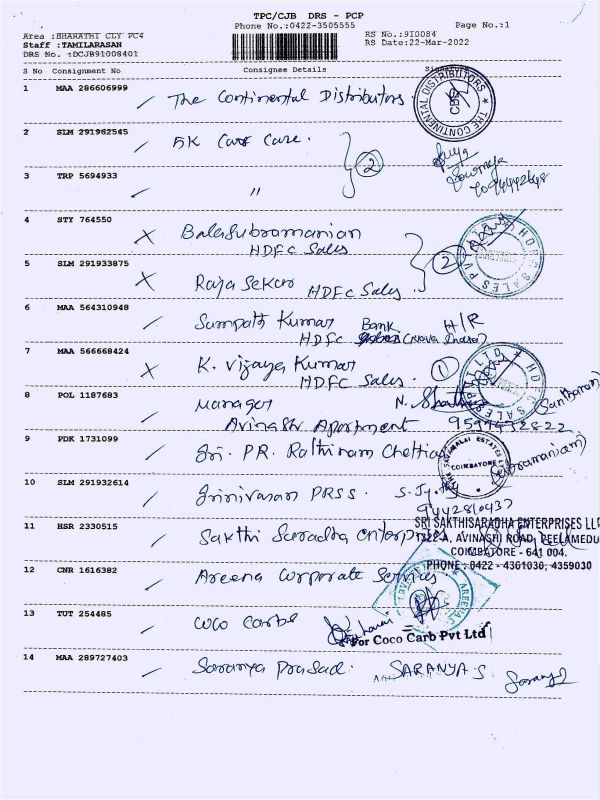 TPC/CJB DRS - PCP
Phone No.:0422-3505555 Page No.:1
Area :BHARATHI CLY PC4 RS No.:910084
Staff :TAMILARASAN RS Date:22-Mar-2022
DRS No. :DCJB91008401
S No Consignment No Consignee Details Signature
1 MAA 286606999 The Continental Distributors.
THE CONTINENTAL DISTRIBUTORS CBE
2 SLM 291962545 SK Car Care. 2
3 TRP 5694933 "
Sowmya
4 STY 764550 Balasubramanian
HDFC Sales
HDFC SALES PVT LTD
5 SLM 291933875 Raja Sekar HDFC Sales. 2
6 MAA 564310948 Sampath Kumar Bank H/R
HDFC
7 MAA 566668424 K. Vijaya Kumar 1
HDFC Sales.
HDFC SALES PVT LTD
8 POL 1187683 Manager N.
Avinashi Apartment (Santharam)
9 PDK 1731099 Sri. PR. Rathinam Chettiar
ESTATES COIMBATORE
10 SLM 291932614 Srinivasan PRSS.
11 HSR 2330515 Sakthi Saradha Enterprises
SRI SAKTHISARADHA ENTERPRISES LL
1322-A, AVINASHI ROAD, PEELAMEDU
COIMBATORE - 641 004.
PHONE : 0422 - 4361030, 4359030
12 CNR 1616382 Areena Corporate Services
13 TUT 254485 Coco Carbs
For Coco Carb Pvt Ltd
14 MAA 289727403 Saranya Prasad. SARANYA.S